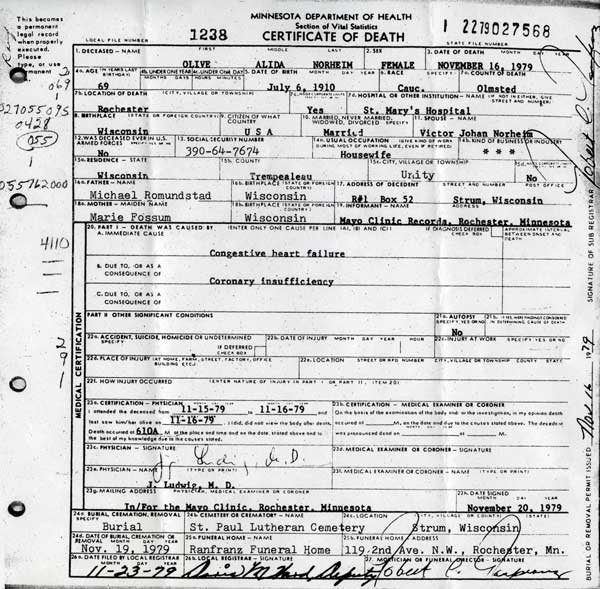 This becomes
a permanent
legal record
when properly
executed.
Please
type or
use
permanent
MINNESOTA DEPARTMENT OF HEALTH
Section of Vital Statistics
CERTIFICATE OF DEATH
LOCAL FILE NUMBER 1238
1 2279027568
STATE FILE NUMBER
1. DECEASED - NAME FIRST MIDDLE LAST 2. SEX 3. DATE OF DEATH MONTH DAY YEAR
OLIVE ALIDA NORHEIM FEMALE NOVEMBER 16, 1979
4A. AGE (IN YEARS LAST BIRTHDAY) 4B. UNDER ONE YEAR 4C. UNDER ONE DAY 5. DATE OF BIRTH MONTH DAY YEAR 6. RACE (SPECIFY) 7A. COUNTY OF DEATH
MOS DAYS HOURS MINUTES
69 July 6, 1910 Cauc. Olmsted
7B. LOCATION OF DEATH (CITY, VILLAGE OR TOWNSHIP) 7D. HOSPITAL OR OTHER INSTITUTION - NAME (IF NOT IN EITHER, GIVE STREET AND NUMBER)
Rochester Yes St. Mary's Hospital
8. BIRTHPLACE (STATE OR FOREIGN COUNTRY) 9. CITIZEN OF WHAT COUNTRY 10. MARRIED, NEVER MARRIED, WIDOWED, DIVORCED (SPECIFY) 11. SPOUSE - NAME
Wisconsin USA Married Victor Johan Norheim
12. WAS DECEASED EVER IN U.S. ARMED FORCES (SPECIFY YES OR NO) 13. SOCIAL SECURITY NUMBER 14A. USUAL OCCUPATION (GIVE KIND OF WORK DURING MOST OF WORKING LIFE, EVEN IF RETIRED) 14B. KIND OF BUSINESS OR INDUSTRY
No 390-64-7674 Housewife * * *
15A. RESIDENCE - STATE 15B. COUNTY 15C. CITY, VILLAGE OR TOWNSHIP
Wisconsin Trempealeau Unity No
16A. FATHER - NAME 16B. BIRTHPLACE (STATE OR FOREIGN COUNTRY) 17. ADDRESS OF DECEDENT STREET AND NUMBER POST OFFICE
Michael Romundstad Wisconsin R#1 Box 52 Strum, Wisconsin
18A. MOTHER - MAIDEN NAME 18B. BIRTHPLACE (STATE OR FOREIGN COUNTRY) 19. INFORMANT - NAME
Marie Fossum Wisconsin Mayo Clinic Records, Rochester, Minnesota
20. PART I - DEATH WAS CAUSED BY (ENTER ONLY ONE CAUSE PER LINE (A), (B) AND (C)) IF DIAGNOSIS DEFERRED CHECK BOX APPROXIMATE INTERVAL BETWEEN ONSET AND DEATH
A. IMMEDIATE CAUSE
Congestive heart failure
B. DUE TO, OR AS A CONSEQUENCE OF
Coronary insufficiency
C. DUE TO, OR AS A CONSEQUENCE OF
PART II OTHER SIGNIFICANT CONDITIONS 21A. AUTOPSY (SPECIFY YES OR NO) 21B. IF YES, WERE FINDINGS CONSIDERED IN DETERMINING CAUSE OF DEATH
No
22A. ACCIDENT, SUICIDE, HOMICIDE OR UNDETERMINED (SPECIFY) IF DEFERRED CHECK BOX 22B. DATE OF INJURY MONTH DAY YEAR HOUR 22C. INJURY AT WORK SPECIFY YES OR NO
22D. PLACE OF INJURY (AT HOME, FARM, STREET, FACTORY, OFFICE BUILDING ETC.) 22E. LOCATION STREET OR RFD NUMBER CITY, VILLAGE OR TOWNSHIP COUNTY STATE
22F. HOW INJURY OCCURRED (ENTER NATURE OF INJURY IN PART I OR PART II, ITEM 20)
MEDICAL CERTIFICATION
23A. CERTIFICATION - PHYSICIAN MONTH DAY YEAR MONTH DAY YEAR
I attended the deceased from 11-15-79 to 11-16-79 and
last saw him/her alive on 11-16-79. I (did, did not) view the body after death.
Death occurred at 610A M, at the place and time and on the date, stated above and to
the best of my knowledge due to the causes stated.
23B. CERTIFICATION - MEDICAL EXAMINER OR CORONER
On the basis of the examination of the body and/or the investigation, in my opinion death
occurred at M, on the date and due to the causes stated above. The decedent
was pronounced dead on at M.
23C. PHYSICIAN - SIGNATURE 23D. MEDICAL EXAMINER OR CORONER - SIGNATURE
23E. PHYSICIAN - NAME (TYPE OR PRINT) 23F. MEDICAL EXAMINER OR CORONER - NAME (TYPE OR PRINT)
J. Ludwig, M. D.
23G. MAILING ADDRESS PHYSICIAN, MEDICAL EXAMINER OR CORONER 23H. DATE SIGNED MONTH DAY YEAR
In/For the Mayo Clinic, Rochester, Minnesota November 20, 1979
24A. BURIAL, CREMATION, REMOVAL (SPECIFY) 24B. CEMETERY OR CREMATORY - NAME 24C. LOCATION CITY, VILLAGE OR COUNTY STATE
Burial St. Paul Lutheran Cemetery Strum, Wisconsin
24D. DATE OF BURIAL, CREMATION OR REMOVAL MONTH DAY YEAR 25A. FUNERAL HOME - NAME 25B. FUNERAL HOME - ADDRESS
Nov. 19, 1979 Ranfranz Funeral Home 119-2nd Ave. N.W., Rochester, Mn.
26A. DATE FILED BY LOCAL REGISTRAR MONTH DAY YEAR 26B. LOCAL REGISTRAR - SIGNATURE 27. MORTICIAN OR FUNERAL DIRECTOR - SIGNATURE
11-23-79 Deputy
069
0428
055
1
055762000
4110
2
9
1
SIGNATURE OF SUB REGISTRAR
BURIAL OR REMOVAL PERMIT ISSUED